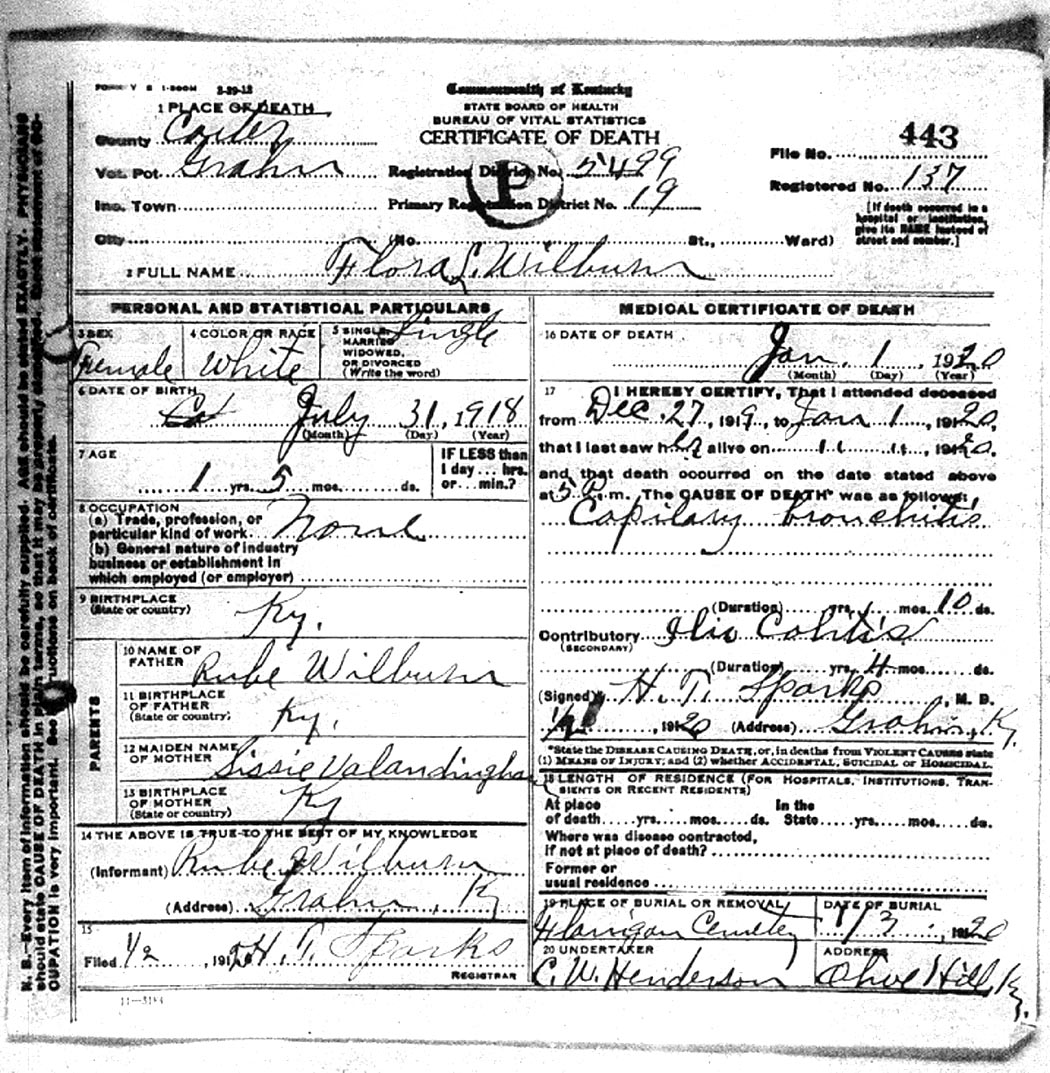 FORM V S 1-500M 3-29-13
Commonwealth of Kentucky
STATE BOARD OF HEALTH
BUREAU OF VITAL STATISTICS
CERTIFICATE OF DEATH
1 PLACE OF DEATH
County Carter
Vot. Pct Grahn
Inc. Town
City
Registration District No. 5499
P
Primary Registration District No. 19
File No. 443
Registered No. 137
[If death occurred in a
hospital or institution,
give its NAME instead of
street and number.]
(No. St., Ward)
2 FULL NAME Flora L. Wilburn
PERSONAL AND STATISTICAL PARTICULARS
3 SEX
Female
4 COLOR OR RACE
White
5 SINGLE,
MARRIED
WIDOWED,
OR DIVORCED
(Write the word)
Single
6 DATE OF BIRTH
July 31, 1918
(Month) (Day) (Year)
7 AGE
1 yrs. 5 mos. ds.
IF LESS than
1 day ... hrs.
or ... min.?
8 OCCUPATION
(a) Trade, profession, or
particular kind of work None
(b) General nature of industry
business or establishment in
which employed (or employer)
9 BIRTHPLACE
(State or country)
Ky.
PARENTS
10 NAME OF
FATHER
Rube Wilburn
11 BIRTHPLACE
OF FATHER
(State or country)
Ky.
12 MAIDEN NAME
OF MOTHER
Sissie Valandingham
13 BIRTHPLACE
OF MOTHER
(State or country)
Ky
14 THE ABOVE IS TRUE TO THE BEST OF MY KNOWLEDGE
(Informant) Rube Wilburn
(Address) Grahn, Ky
15
Filed 1/2, 1920 H. T. Sparks
REGISTRAR
11-3184
MEDICAL CERTIFICATE OF DEATH
16 DATE OF DEATH
Jan. 1, 1920
(Month) (Day) (Year)
17 I HEREBY CERTIFY, That I attended deceased
from Dec. 27, 1919, to Jan 1, 1920,
that I last saw her alive on " ", 1920,
and that death occurred on the date stated above
at 5 P. m. The CAUSE OF DEATH* was as follows:
Capilary bronchitis
(Duration) yrs. mos. 10 ds.
Contributory Ilio Colitis
(SECONDARY)
(Duration) yrs. 4 mos. ds.
(Signed) H. T. Sparks, M. D.
1920 (Address) Grahn, Ky.
*State the DISEASE CAUSING DEATH, or, in deaths from VIOLENT CAUSES state
(1) MEANS OF INJURY; and (2) whether ACCIDENTAL, SUICIDAL OR HOMICIDAL.
18 LENGTH OF RESIDENCE (FOR HOSPITALS, INSTITUTIONS, TRAN-
SIENTS OR RECENT RESIDENTS)
At place In the
of death yrs. mos. ds. State yrs. mos. ds.
Where was disease contracted,
if not at place of death?
Former or
usual residence
19 PLACE OF BURIAL OR REMOVAL
Flanigan Cemetey
DATE OF BURIAL
1/3, 1920
20 UNDERTAKER
C. W. Henderson
ADDRESS
Olive Hill Ky.
N. B.-Every item of information should be carefully supplied. AGE should be stated EXACTLY. PHYSICIANS
should state CAUSE OF DEATH in plain terms, so that it may be properly classified. Exact statement of OC-
CUPATION is very important. See instructions on back of certificate.